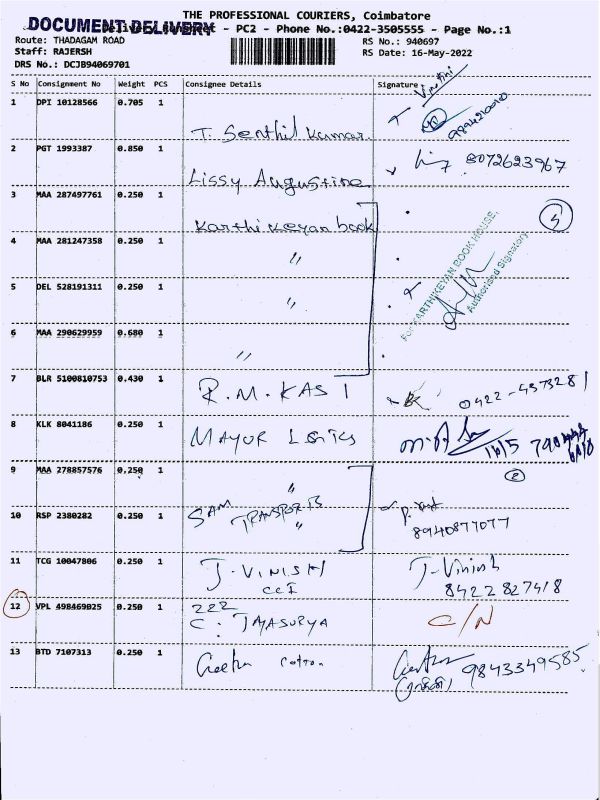 THE PROFESSIONAL COURIERS, Coimbatore
DOCUMENT DELIVERY - PC2 - Phone No.:0422-3505555 - Page No.:1
Route: THADAGAM ROAD RS No.: 940697
Staff: RAJERSH RS Date: 16-May-2022
DRS No.: DCJB94069701
S No Consignment No Weight PCS Consignee Details Signature
1 DPI 10128566 0.705 1
T. Senthil Kumar
2 PGT 1993387 0.850 1 8072623967
Lissy Augustine
3 MAA 287497761 0.250 1
Karthikeyan book
4 MAA 281247358 0.250 1
"
For KARTHIKEYAN BOOK HOUSE,
Authorised Signatory
5 DEL 528191311 0.250 1
"
6 MAA 290629959 0.680 1
"
7 BLR 5100810753 0.430 1
R.M.KASI
8 KLK 8041186 0.250 1
MAYUR 16/5
9 MAA 278857576 0.250 1
" 2
10 RSP 2380282 0.250 1
SAM TRANSPORTS "
8940877077
11 TCG 10047806 0.250 1
J-VINISH J-Vinish
CCI 8422827418
12 VPL 498469025 0.250 1
222
C. JAYASURYA C/N
13 BTD 7107313 0.250 1
Geetha cotton 9843349585